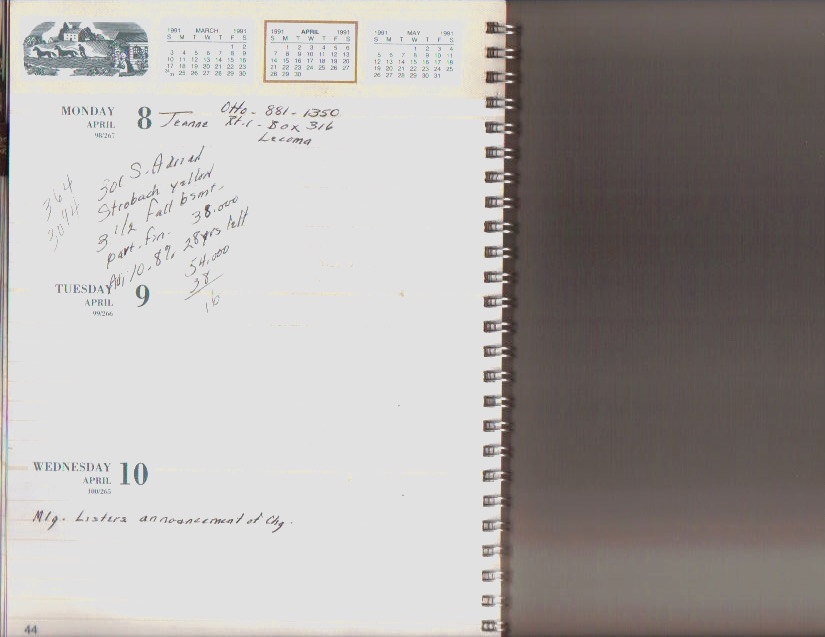 1991 MARCH 1991
S M T W T F S
1 2
3 4 5 6 7 8 9
10 11 12 13 14 15 16
17 18 19 20 21 22 23
24/31 25 26 27 28 29 30
1991 APRIL 1991
S M T W T F S
1 2 3 4 5 6
7 8 9 10 11 12 13
14 15 16 17 18 19 20
21 22 23 24 25 26 27
28 29 30
1991 MAY 1991
S M T W T F S
1 2 3 4
5 6 7 8 9 10 11
12 13 14 15 16 17 18
19 20 21 22 23 24 25
26 27 28 29 30 31
MONDAY 8
APRIL
98/267
Otto - 881-1350
Jeanne Rt. 1 - Box 316
Lecoma
364
301 S.
Strobach yellow
3 1/2 Full bsmt.
part. fin. 38.000
Adj 10.8% 28 yrs left
54.000
38
16
TUESDAY 9
APRIL
99/266
WEDNESDAY 10
APRIL
100/265
Mtg. Listers announcement of Chg.
44